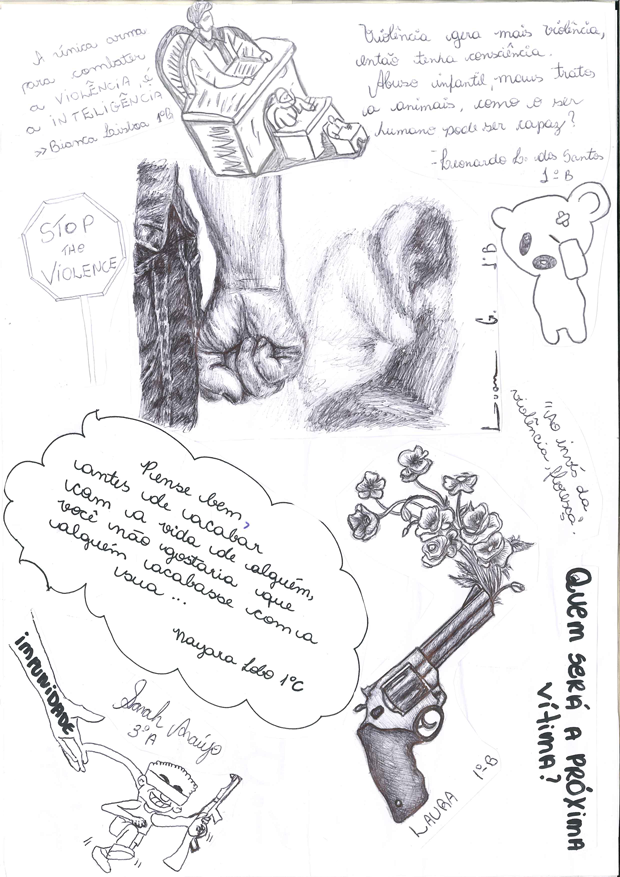 A única arma
para combater
a VIOLÊNCIA é
a INTELIGÊNCIA
>> Bianca 1ºB
Violência gera mais violência,
então tenha consciência.
Abuso infantil, maus tratos
a animais, como o ser
humano pode ser capaz?
- Leonardo L. dos Santos
1º B
STOP
THE
VIOLENCE
Luan G. 1ºB
"Ao invés da
violência, floresça."
Pense bem,
antes de acabar
com a vida de alguém,
você não gostaria que
alguém acabasse com a
sua ...
Nayara Lobo 1ºC
QUEM SERÁ A PRÓXIMA
VÍTIMA?
IMPUNIDADE
Sarah Araújo
3ºA
LAURA 1º-B